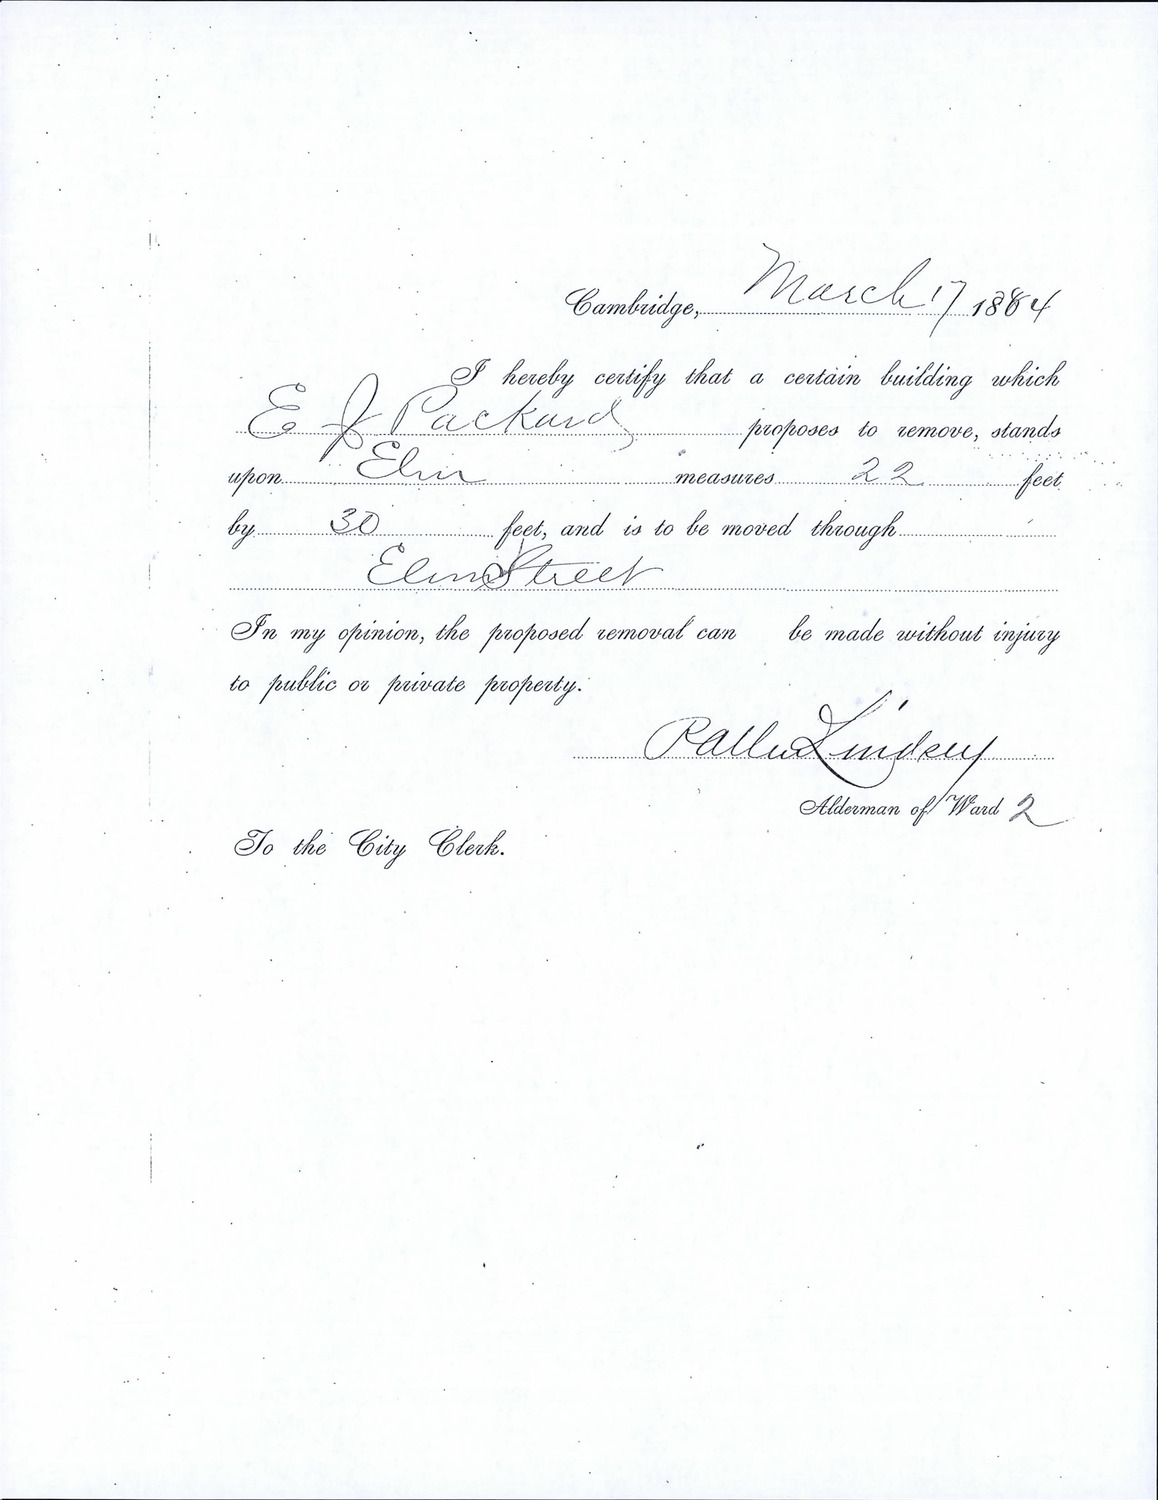 Cambridge, March 17 1884
I hereby certify that a certain building which
E J Packard proposes to remove, stands
upon Elm measures 22 feet
by 30 feet, and is to be moved through
Elm Street
In my opinion, the proposed removal can be made without injury
to public or private property.
Lindsey
Alderman of Ward 2
To the City Clerk.